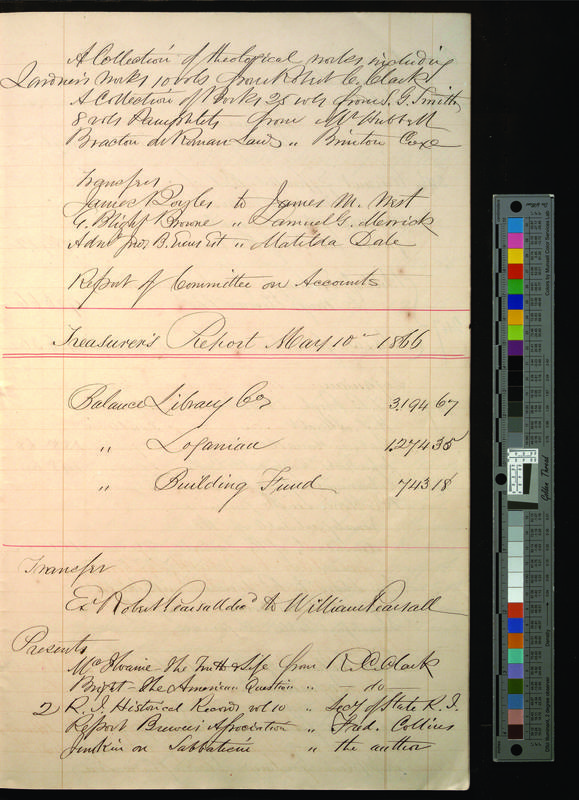 A Collection of theological works including
Lardner's Works 10 vols from Robert C. Clark
A Collection of Books 25 vols from S. G. Smith
8 vols Pamphlets from Mr Hubbell
Bracton de Roman Law " Brinton Coxe
Transfer
James Boyles to James M. West
G. Blight Browne " Samuel G. Merrick
Admr Jno B. Est " Matilda Dale
Report of Committee on Accounts
Treasurer's Report May 10th 1866
Balance Library Co 3.194 67
" Loganian 1.274 35
" Building Fund 743 18
Transfer
Exr Robert Pearsall decd to William Pearsall
Presents
McIlvaine - The Truth & Life from R. C. Clark
Bright - The American Question " do
2) R. I. Historical Records vol 10 " Secy of State R. I.
Report Brewers Association " Fred. Collins
Jenkin on " the author